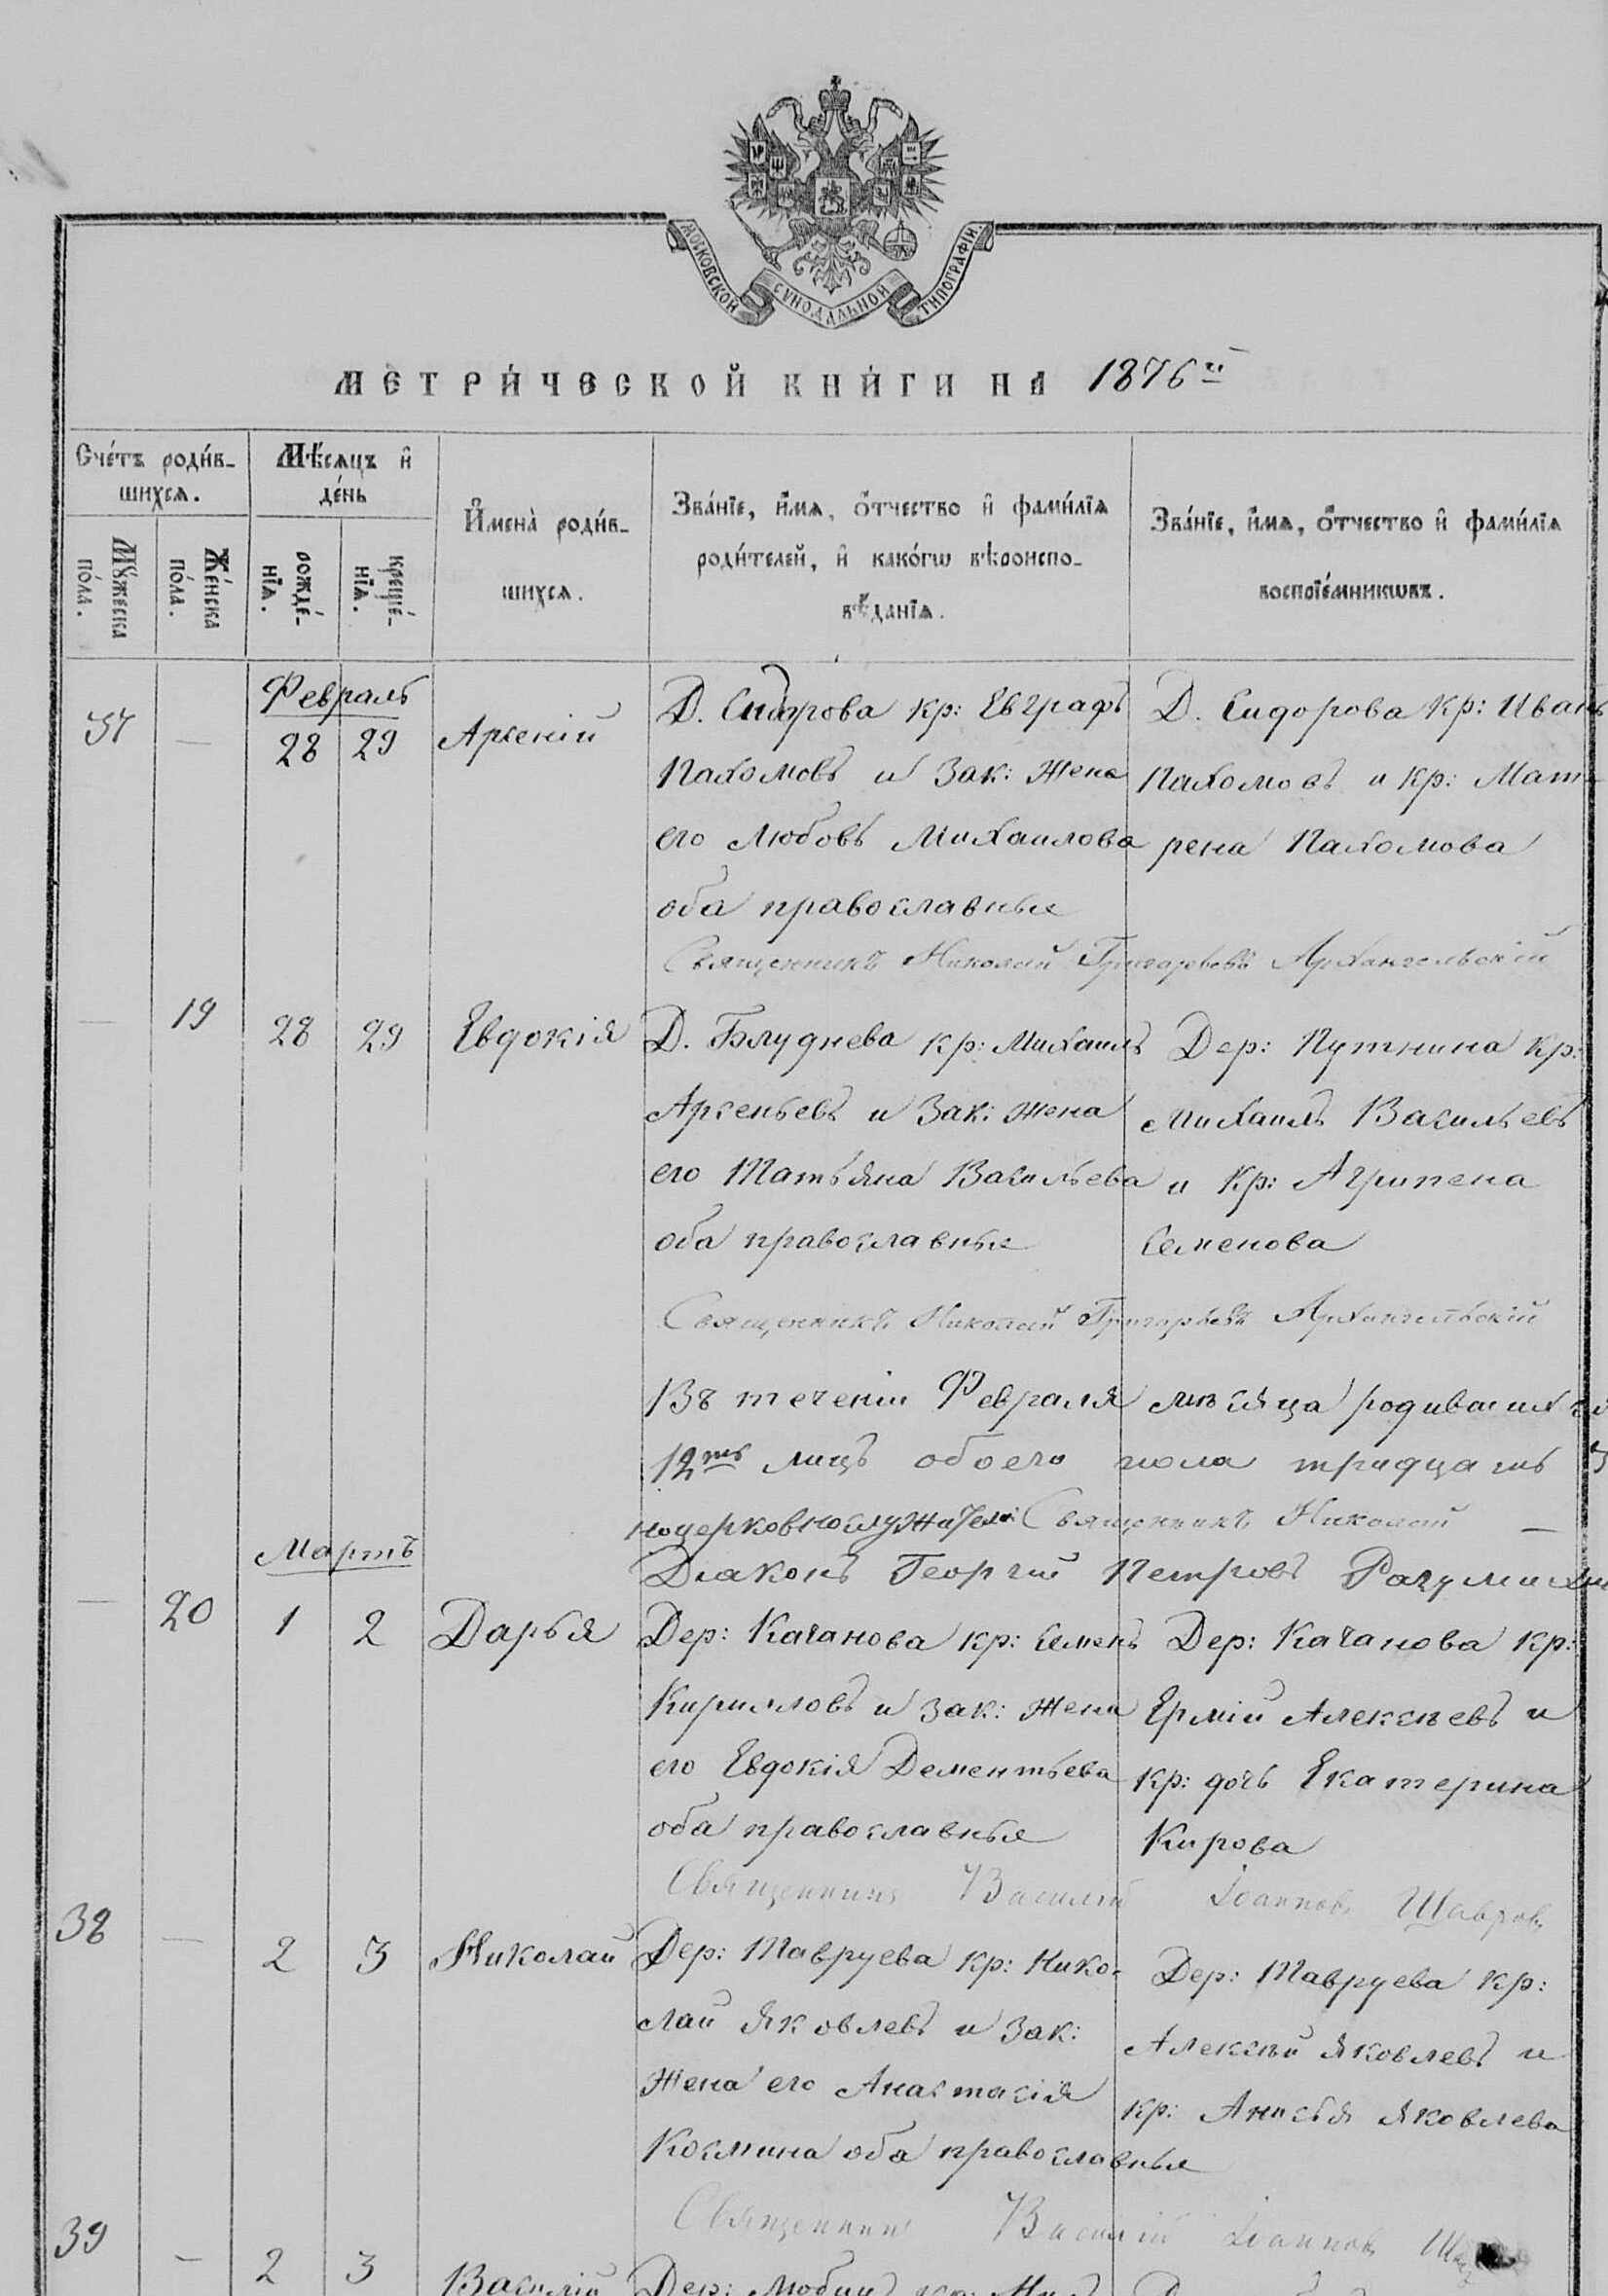 МОСКОВСКОЙ СѴНОДАЛЬНОЙ ТИПОГРАФІИ.
МЕТРИ́ЧЕСКОЙ КНИ́ГИ НА 1876й
Сче́тъ роди́в-
шихсѧ.
Мѣ́сѧцъ и҆
де́нь
И҆мена̀ роди́в-
шихсѧ.
Зва́нїе, и҆́мѧ, ѻ҆́тчество и҆ фами́лїѧ
роди́телей, и҆ како́гѡ вѣроиспо-
вѣ́данїѧ.
Зва́нїе, и҆́мѧ, ѻ҆́тчество и҆ фами́лїѧ
воспрїе́мникѡвъ.
Мꙋ́жеска
по́ла.
Же́нска
по́ла.
рожде́-
нїѧ.
креще́-
нїѧ.
Февраль
37 — 28 29 Арсеній
Д. Сидорова кр: Евграфъ
Пахомовъ и зак: жена
его Любовь Михаилова
оба православные
Д. Сидорова кр: Иванъ
Пахомовъ и кр: Мат-
рена Пахомова
Священникъ Николай Григорьевъ Архангельскій
— 19 28 29 Евдокія
Д. Блуднева кр: Михаилъ
Арсеньевъ и зак: жена
его Татьяна Васильева
оба православные
Дер: Путнина кр:
Михаилъ Васильевъ
и кр: Агрипена
Семенова
Священникъ Николай Григорьевъ Архангельскій
Въ теченіи Февраля мѣсяца родившихся
12ть лицъ обоего пола тридцать
ноцерковнослужители: Священникъ Николай —
Діаконъ Георгій Петровъ
Мартъ
— 20 1 2 Дарья
Дер: Качанова кр: Семенъ
Кирилловъ и зак: жена
его Евдокія Дементьева
оба православные
Дер: Качанова кр:
Ермій Алексѣевъ и
кр: дочь Екатерина
Кирова
Священникъ Василій Іоанновъ Щавровъ
38 — 2 3 Николай
Дер: Тавруева кр: Нико-
лай Яковлевъ и зак:
жена его Анастасія
Космина оба православные
Дер: Тавруева кр:
Алексѣй Яковлевъ и
кр: Анисья Яковлева
Священникъ Василій Іоанновъ
39 — 2 3 Василій
Дер: